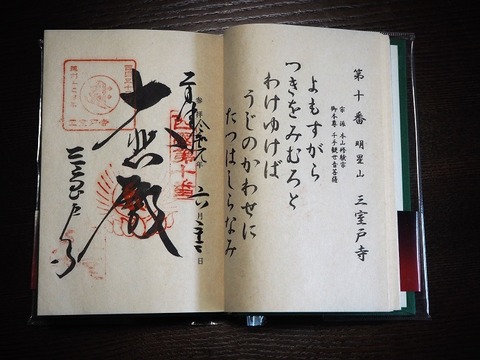 第十番 明星山 三室戸寺
宗派 本山修験宗
御本尊 千手観世音菩薩
よもすがら
つきをみむろと
わけゆけば
うじのかわせに
たつはしらなみ
西国第十番
大悲殿
三室戸寺